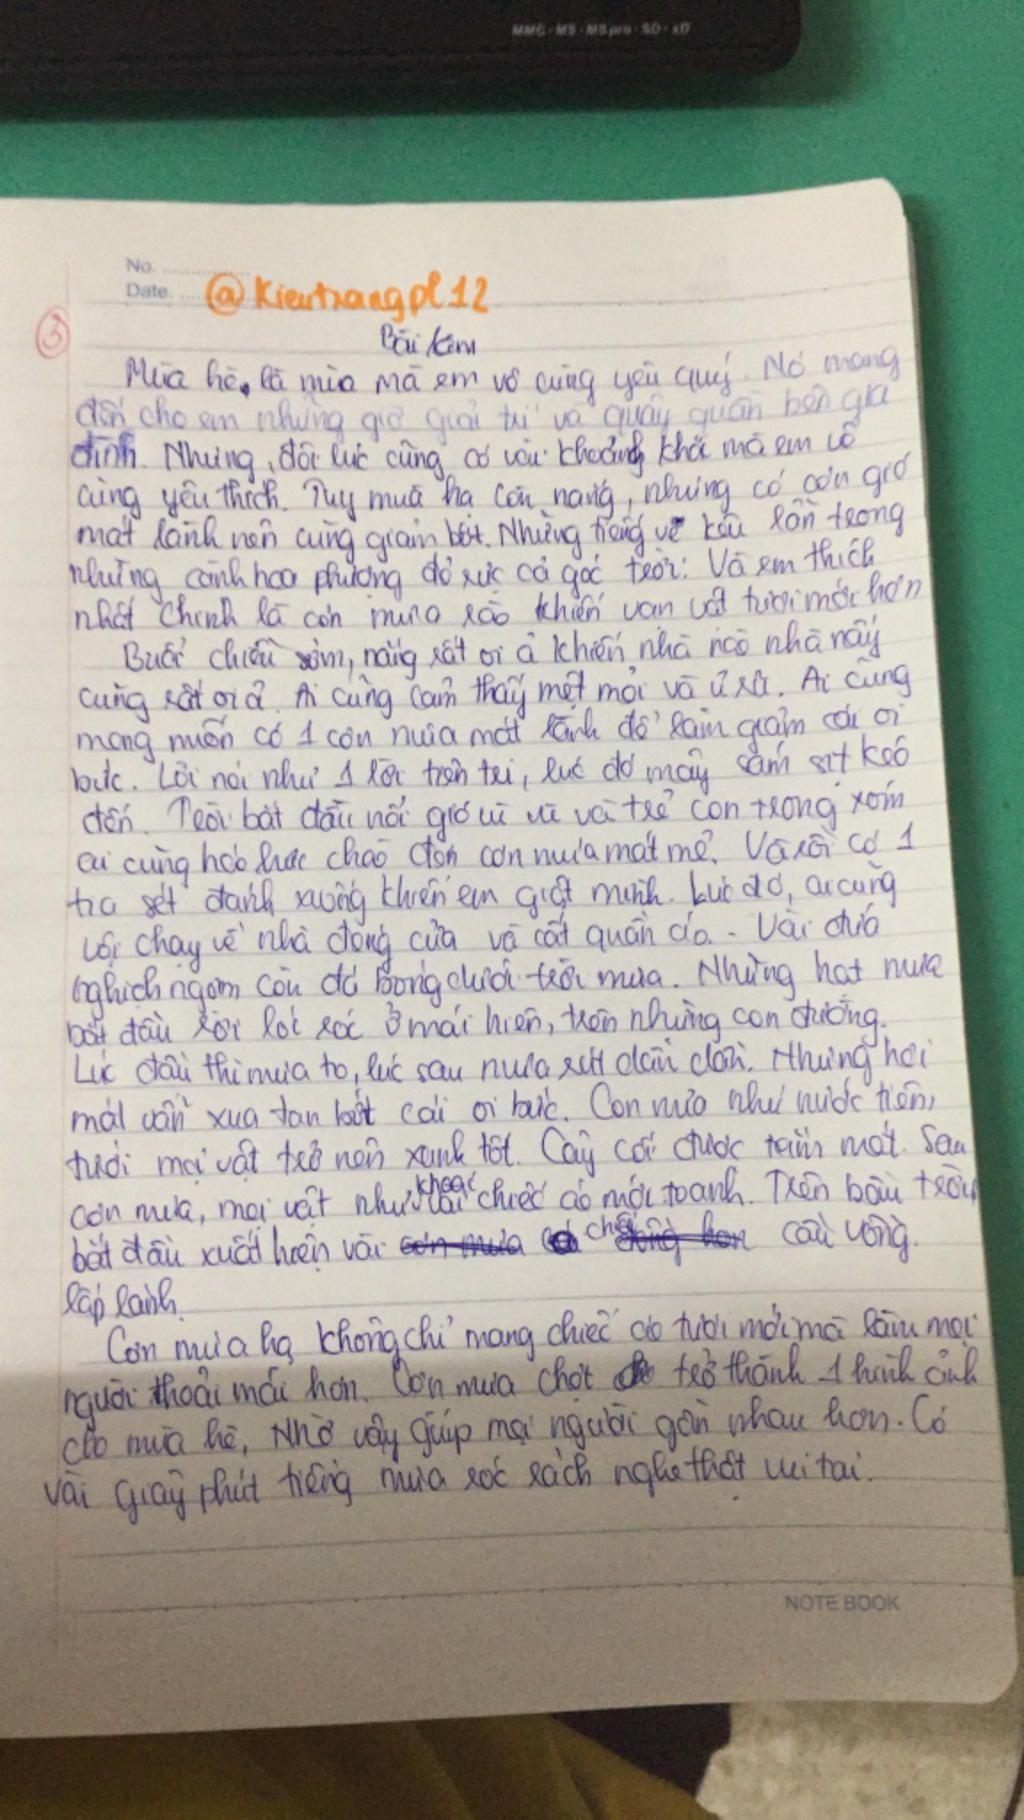 MMC · MS · MS pro · SD · xD
No.
Date
@Kieutrangpl12
3
Bài làm
Mùa hè, là mùa mà em vô cùng yêu quý. Nó mang
đến cho em những giờ giải trí và quây quần bên gia
đình. Nhưng, đôi lúc cũng có vài khoảng khắc mà em vô
cùng yêu thích. Tuy mùa hạ còn nắng, nhưng có cơn gió
mát lành nên cũng giảm bớt. Những tiếng ve kêu lên trong
những cành hoa phượng đỏ rực cả góc trời. Và em thích
nhất chính là cơn mưa rào khiến vạn vật tươi mới hơn
Buổi chiều sớm, nắng rất oi ả khiến nhà nào nhà nấy
cũng rất oi ả. Ai cũng cảm thấy mệt mỏi và ủ rũ. Ai cũng
mong muốn có 1 cơn mưa mát lành để làm giảm cái oi
bức. Lời nói như 1 lời tiên tri, lúc đó mây sấm sịt kéo
đến. Trời bắt đầu nổi gió vì vù và trẻ con trong xóm
ai cũng háo hức chào đón cơn mưa mát mẻ. Và rồi có 1
tia sét đánh xuống khiến em giật mình. Lúc đó, ai cũng
vội chạy về nhà đóng cửa và cất quần áo. Vài đứa
nghịch ngợm còn đá bóng dưới trời mưa. Những hạt mưa
bắt đầu rơi lốc rốc ở mái hiên, trên những con đường.
Lúc đầu thì mưa to, lúc sau mưa rút dần dần. Nhưng hơi
mát vẫn xua tan bớt cái oi bức. Cơn mưa như nước tiên,
tưới mọi vật trở nên xanh tốt. Cây cối được tắm mát. Sau
cơn mưa, mọi vật như khoác lại chiếc áo mới toanh. Trên bầu trời
bắt đầu xuất hiện vài chiếc cầu vồng.
lấp lánh.
Cơn mưa hạ không chỉ mang chiếc áo tươi mới mà làm mọi
người thoải mái hơn. Cơn mưa chợt trở thành 1 hình ảnh
cho mùa hè, Nhờ vậy giúp mọi người gần nhau hơn. Có
vài giây phút tiếng mưa róc rách nghe thật vui tai.
NOTE BOOK